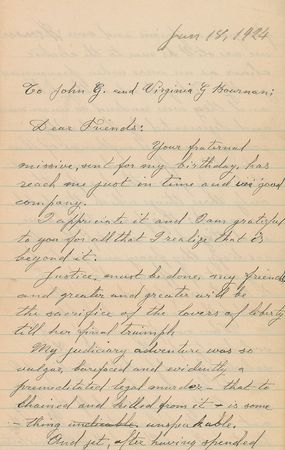 Jun 18, 1924
To John G. and Virginia G Bowman;
Dear Friends:
Your fraternal
missive, sent for my birthday, has
reach me just on time and in good
company.
I appriate it and I am grateful
to you for all that I realize that is
beyond it.
Justice, must be done, my friends
and greater and greater will be
the sacrifice of the lovers of liberty
till her final triumph
My judiciary adventure was so
vulgar, barefaced and evidently a
premeditated legal murder - that to
chained and killed from it - is some
-thing unspeakable,
And yet, after having spended